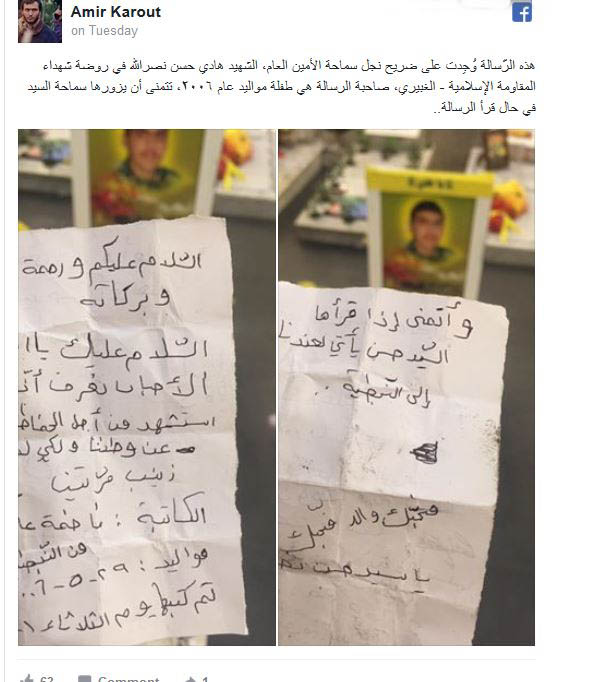 Amir Karout
on Tuesday
هذه الرّسالة وُجِدت على ضريح نجل سماحة الأمين العام، الشهيد هادي حسن نصرالله في روضة شهداء
المقاومة الإسلامية - الغبيري، صاحبة الرسالة هي طفلة مواليد عام ٢٠٠٦، تتمنى أن يزورها سماحة السيد
في حال قرأ الرسالة..
السّلام عليكم ورحمة
وبركاته
السّلام عليك يا
استشهد من أجل الحفاظ
عن وطننا ولكي
زينب مرّتين
الكاتبة : فاطمة
من
مواليد : ٢٩-٥-
تم كتبها يوم الثلاثاء
وأتمنى إذا قرأها
السّيد حسن يأتي لعندنا
إلى النّبطية ..
والد
يا سيد حسن
62
Comment
1